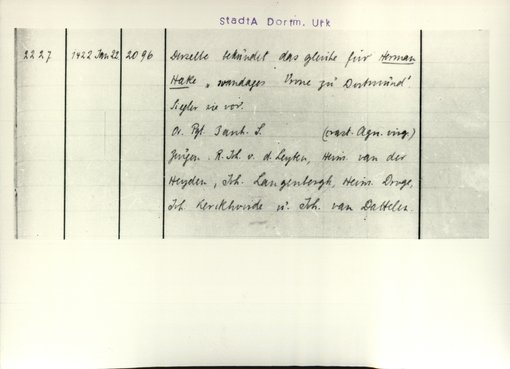 StadtA Dortm. Urk
2227 1422 Jan 22 2096 Derselbe bekundet das gleiche für Herman
Hake, wandages Vrone zu Dortmund.
Siegler wie vor.
Or. Pgt. 3 anh. S. (Agn. virg.)
Zeugen: R. Joh. v. d. Leyten, Heinr. van der
Heyden, Joh. Langenbergh, Heinr. Droge,
Joh. Kerckhorde u. Joh. van Dattelen.